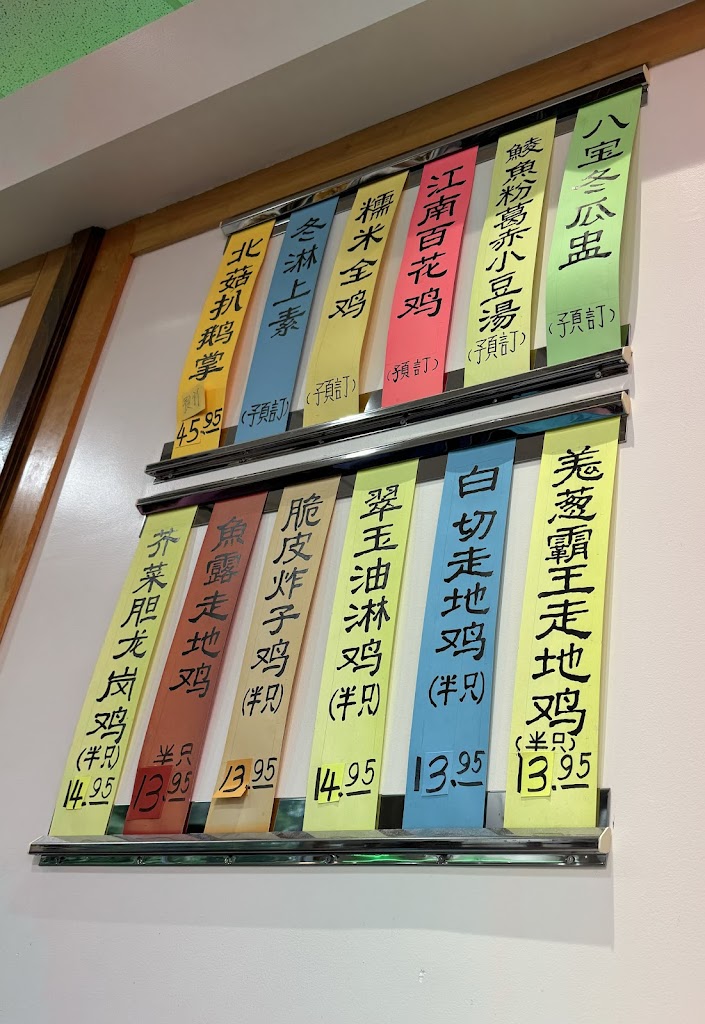 八宝冬瓜盅
(預訂)
鯪魚粉葛赤小豆湯
(預訂)
江南百花鸡
(預訂)
糯米全鸡
(預訂)
冬淋上素
(預訂)
北菇扒鹅掌
45.95
羗葱霸王走地鸡
(半只)
13.95
白切走地鸡
(半只)
13.95
翠玉油淋鸡
(半只)
14.95
脆皮炸子鸡
(半只)
13.95
魚露走地鸡
半只
13.95
芥菜胆龙岗鸡
(半只)
14.95